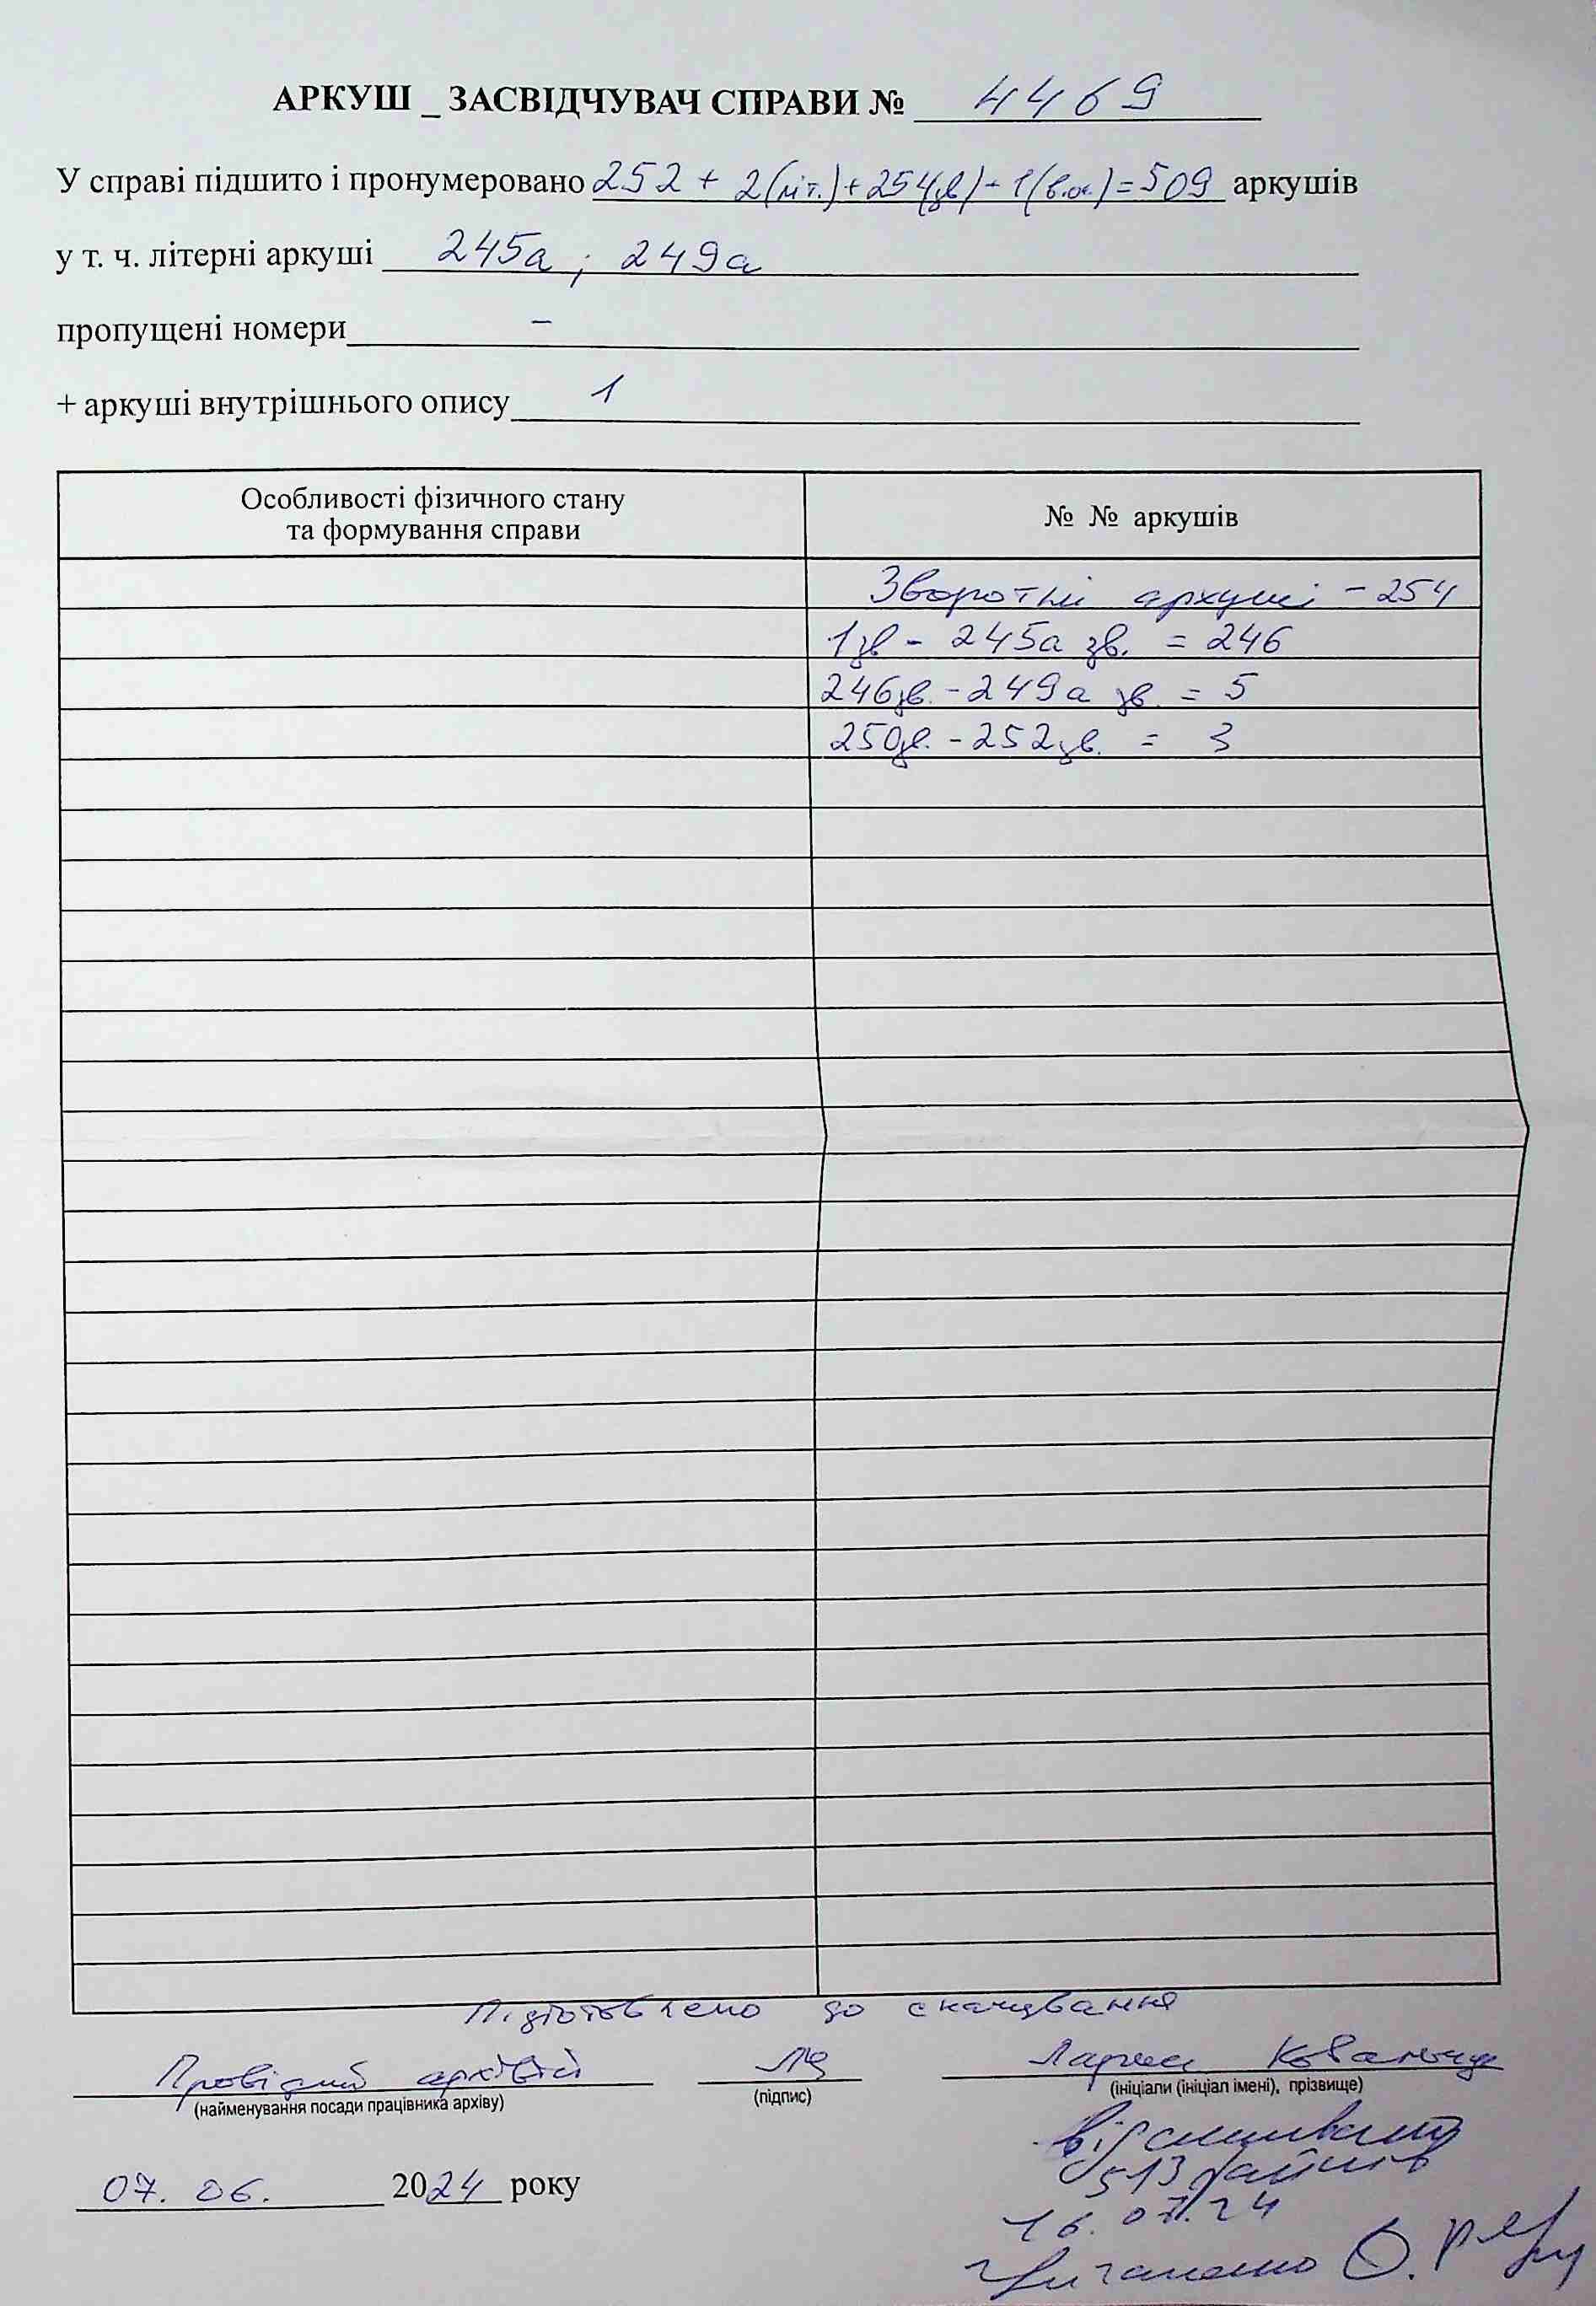 АРКУШ _ ЗАСВІДЧУВАЧ СПРАВИ № 4469
У справі підшито і пронумеровано 252 + 2(літ.) + 254(зв) + 1(в.оп.) = 509 аркушів
у т. ч. літерні аркуші 245а ; 249а
пропущені номери –
+ аркуші внутрішнього опису 1
Особливості фізичного стану та формування справи
№ № аркушів
Зворотні аркуші – 254
1зв – 245а зв. = 246
246зв. – 249а зв. = 5
250зв. – 252зв. = 3
Підготовлено до сканування
Провідний архівіст Лариса
(найменування посади працівника архіву) (підпис) (ініціали (ініціал імені), прізвище)
відскановано
513 файлів
07. 06. 2024 року
16.07.24
О.